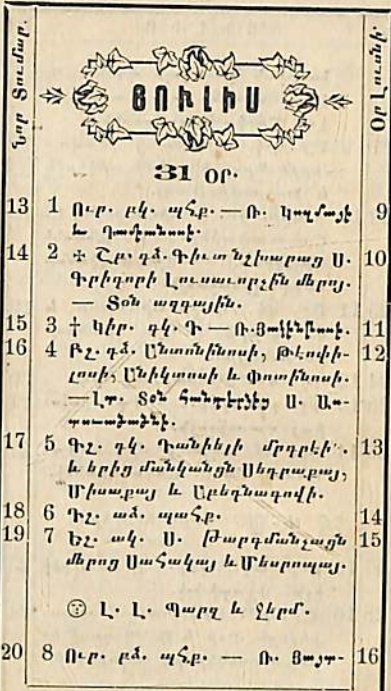 Նոր Տումար.
Օր Լուսնի.
ՅՈՒԼԻՍ
31 օր.
13 1 Ուր. բկ. պհ.ք. — Ռ. Կոզմայի 9
և Դամիանոսի.
14 2 Շբ. գձ. Գիւտ նշխարաց Ս. 10
Գրիգորի Լուսաւորչին մերոյ.
— Տօն ազգային.
15 3 † Կիր. գկ. Դ — Ռ. Յակինթոսի. 11
16 4 Բշ. դձ. Անտոնինոսի, Թէոփի- 12
լոսի, Անիկտոսի և Փոտինոսի.
— Լտ. Տօն Հանդերձից Ս. Աս-
տուածածնի.
17 5 Գշ. դկ. Դանիելի մրգրէի. 13
և երից մանկանցն Սեդրաքայ,
Միսաքայ և Աբեդնագովի.
18 6 Դշ. աձ. պահ.ք. 14
19 7 Եշ. ակ. Ս. Թարգմանչացն 15
մերոց Սահակայ և Մեսրոպայ.
Լ. Լ. Պարզ և ջերմ.
20 8 Ուր. բձ. պհ.ք. — Ռ. Յայտ- 16